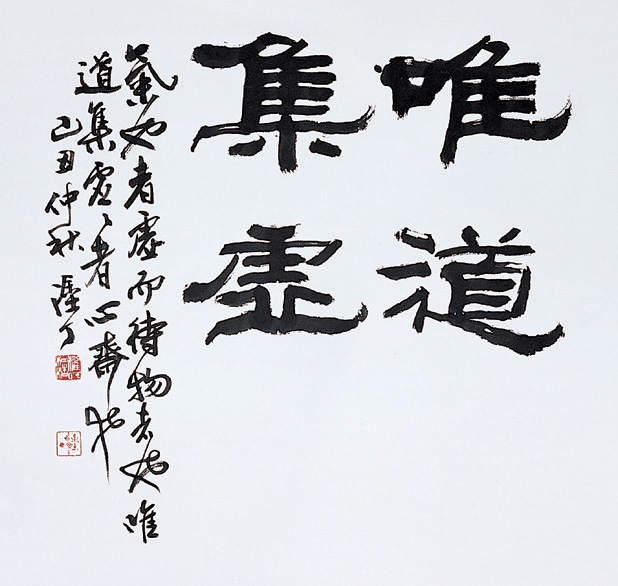 唯道
集虚
氣也者虚而待物者也唯
道集虚々者心齋也
己丑仲秋